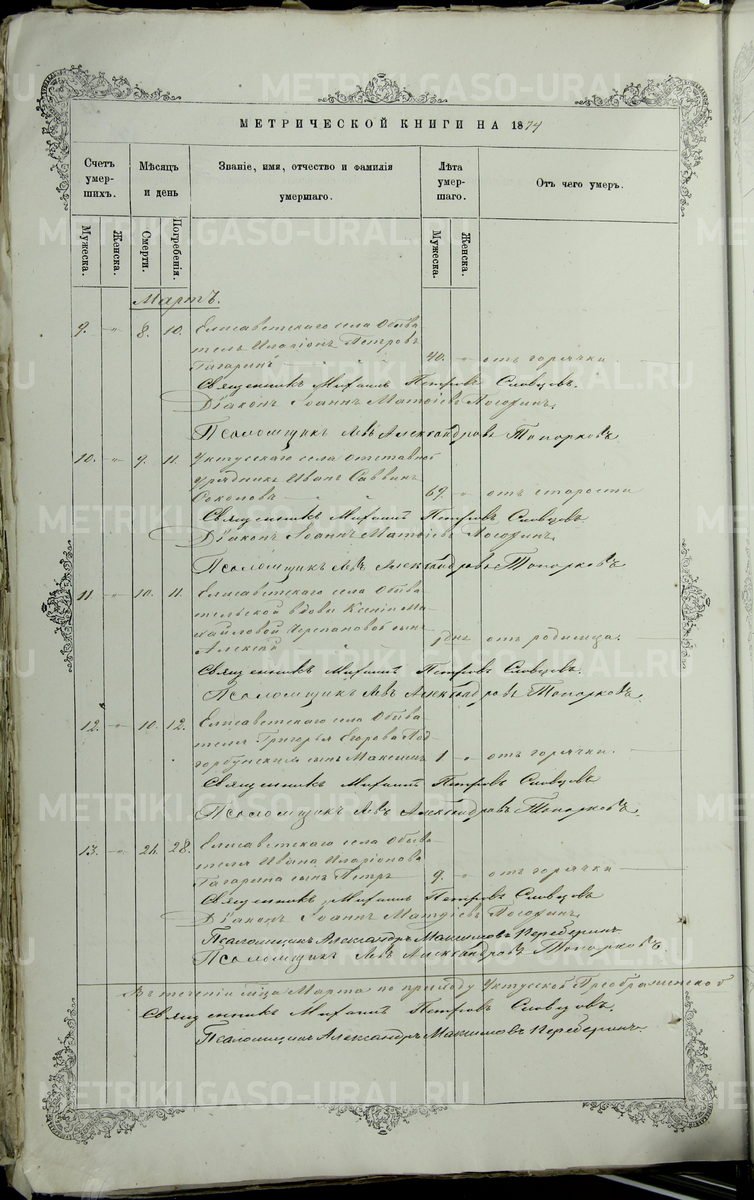 МЕТРИЧЕСКОЙ КНИГИ НА 1874
Счетъ умер-шихъ.
Мѣсяцъ и день
Званіе, имя, отчество и фамилія умершаго.
Лѣта умер-шаго.
Отъ чего умеръ.
Мужеска.
Женска.
Смерти.
Погребенія.
Мужеска.
Женска.
Мартъ.
9. „ 8. 10. Елисаветскаго села Обыва
тель Иларіонъ Петровъ
Гагаринъ 40. „ отъ горячки
Священникъ Михаилъ Петровъ Словцовъ.
Діаконъ Іоаннъ Матѳіевъ
Псаломщикъ Левъ Александровъ Топорковъ
10. „ 9. 11. Уктусскаго села Отставной
урядникъ Иванъ Саввинъ
69. „ отъ старости
Священникъ Михаилъ Петровъ Словцовъ
Діаконъ Іоаннъ Матѳіевъ
Псаломщикъ Левъ Александровъ Топорковъ
11 „ 10. 11. Елисаветскаго села Обыва
тельской вдовы Ксеніи Ми
хайловой Черепановой сынъ
Алексѣй день отъ родимца.
Священникъ Михаилъ Петровъ Словцовъ.
Псаломщикъ Левъ Александровъ Топорковъ.
12. „ 10. 12. Елисаветскаго села Обыва
теля Григорья Егорова Под
горбунскихъ сынъ Максимъ 1 „ отъ горячки.
Священникъ Михаилъ Петровъ Словцовъ
Псаломщикъ Левъ Александровъ Топорковъ.
13. „ 28. Елисаветскаго села Обыва
теля Ивана Иларіонова
Гагарина сынъ Петръ 9. „ отъ горячки
Священникъ Михаилъ Петровъ Словцовъ
Діаконъ Іоаннъ Матѳіевъ
Псаломщикъ Александръ Максимовъ
Псаломщикъ Левъ Александровъ Топорковъ.
Въ теченіи м-ца Марта по приходу Уктусской Преображенской
Священникъ Михаилъ Петровъ Словцовъ.
Псаломщикъ Александръ Максимовъ
METRIKI.GASO-URAL.RU